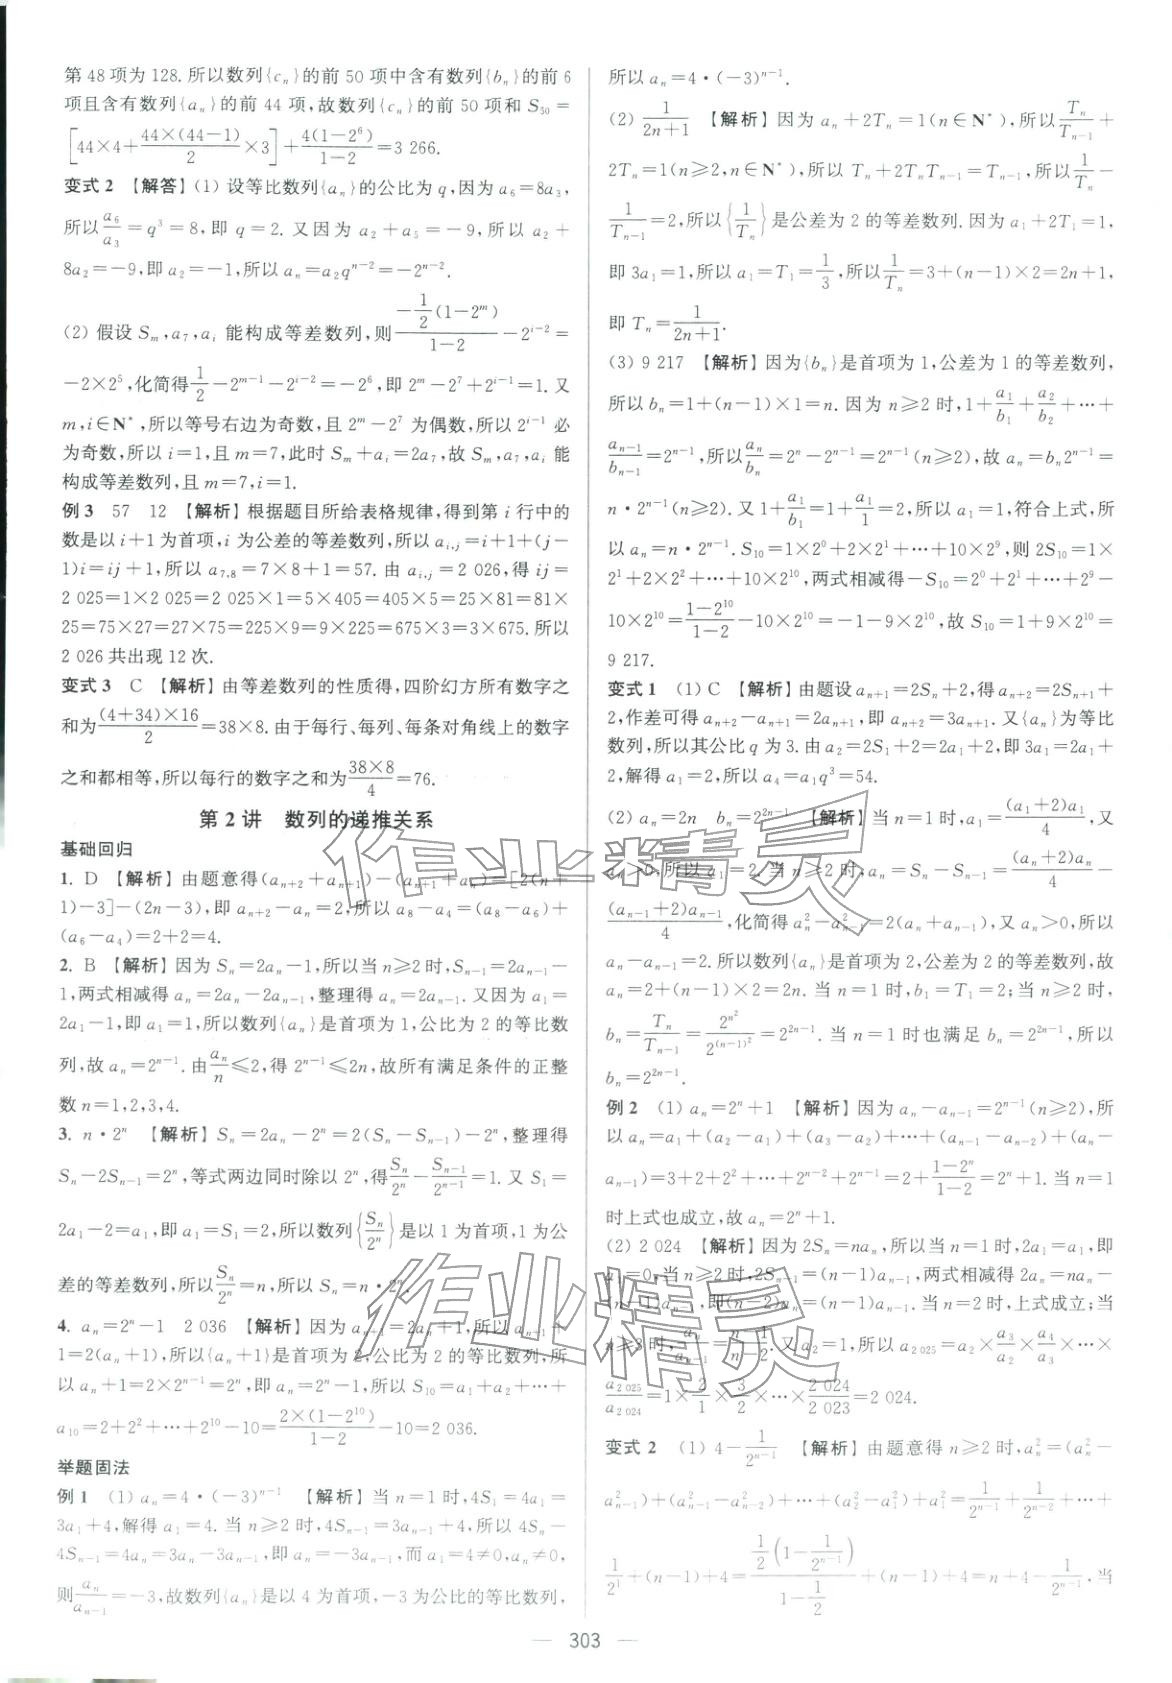 第 48 项为 128. 所以数列{cₙ}的前 50 项中含有数列{bₙ}的前 6
项且含有数列{aₙ}的前 44 项,故数列{cₙ}的前 50 项和 S₅₀=
[44×4+44×(44-1)/2×3]+4(1-2⁶)/(1-2)=3 266.
变式 2 【解答】(1) 设等比数列{aₙ}的公比为 q,因为 a₆=8a₃,
所以a₆/a₃=q³=8,即 q=2. 又因为 a₂+a₅=-9,所以 a₂+
8a₂=-9,即 a₂=-1,所以 aₙ=a₂qⁿ⁻²=-2ⁿ⁻².
(2) 假设 Sₘ,a₇,aᵢ 能构成等差数列,则[-1/2(1-2ᵐ)]/(1-2)-2ⁱ⁻²=
-2×2⁵,化简得1/2-2ᵐ⁻¹-2ⁱ⁻²=-2⁶,即 2ᵐ-2⁷+2ⁱ⁻¹=1. 又
m,i∈N*,所以等号右边为奇数,且 2ᵐ-2⁷ 为偶数,所以 2ⁱ⁻¹ 必
为奇数,所以 i=1,且 m=7,此时 Sₘ+aᵢ=2a₇,故 Sₘ,a₇,aᵢ 能
构成等差数列,且 m=7,i=1.
例 3 57 12 【解析】根据题目所给表格规律,得到第 i 行中的
数是以 i+1 为首项,i 为公差的等差数列,所以 aᵢ,ⱼ=i+1+(j-
1)i=ij+1,所以 a₇,₈=7×8+1=57. 由 aᵢ,ⱼ=2 026,得 ij=
2 025=1×2 025=2 025×1=5×405=405×5=25×81=81×
25=75×27=27×75=225×9=9×225=675×3=3×675. 所以
2 026 共出现 12 次.
变式 3 C 【解析】由等差数列的性质得,四阶幻方所有数字之
和为(4+34)×16/2=38×8. 由于每行、每列、每条对角线上的数字
之和都相等,所以每行的数字之和为38×8/4=76.
第 2 讲 数列的递推关系
基础回归
1. D 【解析】由题意得(aₙ₊₂+aₙ₊₁)-(aₙ₊₁+aₙ)=[2(n+
1)-3]-(2n-3),即 aₙ₊₂-aₙ=2,所以 a₈-a₄=(a₈-a₆)+
(a₆-a₄)=2+2=4.
2. B 【解析】因为 Sₙ=2aₙ-1,所以当 n≥2 时,Sₙ₋₁=2aₙ₋₁-
1,两式相减得 aₙ=2aₙ-2aₙ₋₁,整理得 aₙ=2aₙ₋₁. 又因为 a₁=
2a₁-1,即 a₁=1,所以数列{aₙ}是首项为 1,公比为 2 的等比数
列,故 aₙ=2ⁿ⁻¹. 由aₙ/n≤2,得 2ⁿ⁻¹≤2n,故所有满足条件的正整
数 n=1,2,3,4.
3. n·2ⁿ 【解析】Sₙ=2aₙ-2ⁿ=2(Sₙ-Sₙ₋₁)-2ⁿ,整理得
Sₙ-2Sₙ₋₁=2ⁿ,等式两边同时除以 2ⁿ,得Sₙ/2ⁿ-Sₙ₋₁/2ⁿ⁻¹=1. 又 S₁=
2a₁-2=a₁,即 a₁=S₁=2,所以数列{Sₙ/2ⁿ}是以 1 为首项,1 为公
差的等差数列,所以Sₙ/2ⁿ=n,所以 Sₙ=n·2ⁿ.
4. aₙ=2ⁿ-1 2 036 【解析】因为 aₙ₊₁=2aₙ+1,所以 aₙ₊₁+
1=2(aₙ+1),所以{aₙ+1}是首项为 2,公比为 2 的等比数列,所
以 aₙ+1=2×2ⁿ⁻¹=2ⁿ,即 aₙ=2ⁿ-1. 所以 S₁₀=a₁+a₂+…+
a₁₀=2+2²+…+2¹⁰-10=2×(1-2¹⁰)/(1-2)-10=2 036.
举题固法
例 1 (1) aₙ=4·(-3)ⁿ⁻¹ 【解析】当 n=1 时,4S₁=4a₁=
3a₁+4,解得 a₁=4. 当 n≥2 时,4Sₙ₋₁=3aₙ₋₁+4,所以 4Sₙ-
4Sₙ₋₁=4aₙ=3aₙ-3aₙ₋₁,即 aₙ=-3aₙ₋₁,而 a₁=4≠0,aₙ≠0,
则aₙ/aₙ₋₁=-3,故数列{aₙ}是以 4 为首项,-3 为公比的等比数列,
所以 aₙ=4·(-3)ⁿ⁻¹.
(2) 1/(2n+1) 【解析】因为 aₙ+2Tₙ=1(n∈N*),所以Tₙ/Tₙ₋₁+
2Tₙ=1(n≥2,n∈N*),所以 Tₙ+2TₙTₙ₋₁=Tₙ₋₁,所以1/Tₙ-
1/Tₙ₋₁=2,所以{1/Tₙ}是公差为 2 的等差数列. 因为 a₁+2T₁=1,
即 3a₁=1,所以 a₁=T₁=1/3,所以1/Tₙ=3+(n-1)×2=2n+1,
即 Tₙ=1/(2n+1).
(3) 9 217 【解析】因为{bₙ}是首项为 1,公差为 1 的等差数列,
所以 bₙ=1+(n-1)×1=n. 因为 n≥2 时,1+a₁/b₁+a₂/b₂+…+
aₙ₋₁/bₙ₋₁=2ⁿ⁻¹,所以aₙ/bₙ=2ⁿ-2ⁿ⁻¹=2ⁿ⁻¹(n≥2),故 aₙ=bₙ2ⁿ⁻¹=
n·2ⁿ⁻¹(n≥2). 又 1+a₁/b₁=1+a₁/1=2,所以 a₁=1,符合上式,所
以 aₙ=n·2ⁿ⁻¹. S₁₀=1×2⁰+2×2¹+…+10×2⁹,则 2S₁₀=1×
2¹+2×2²+…+10×2¹⁰,两式相减得-S₁₀=2⁰+2¹+…+2⁹-
10×2¹⁰=(1-2¹⁰)/(1-2)-10×2¹⁰=-1-9×2¹⁰,故 S₁₀=1+9×2¹⁰=
9 217.
变式 1 (1) C 【解析】由题设 aₙ₊₁=2Sₙ+2,得 aₙ₊₂=2Sₙ₊₁+
2,作差可得 aₙ₊₂-aₙ₊₁=2aₙ₊₁,即 aₙ₊₂=3aₙ₊₁. 又{aₙ}为等比
数列,所以其公比 q 为 3. 由 a₂=2S₁+2=2a₁+2,即 3a₁=2a₁+
2,解得 a₁=2,所以 a₄=a₁q³=54.
(2) aₙ=2n bₙ=2²ⁿ⁻¹ 【解析】当 n=1 时,a₁=(a₁+2)a₁/4,又
aₙ>0,所以 a₁=2. 当 n≥2 时,aₙ=Sₙ-Sₙ₋₁=(aₙ+2)aₙ/4-
(aₙ₋₁+2)aₙ₋₁/4,化简得 aₙ²-aₙ₋₁²=2(aₙ+aₙ₋₁),又 aₙ>0,所以
aₙ-aₙ₋₁=2. 所以数列{aₙ}是首项为 2,公差为 2 的等差数列,故
aₙ=2+(n-1)×2=2n. 当 n=1 时,b₁=T₁=2;当 n≥2 时,
bₙ=Tₙ/Tₙ₋₁=2^(n²)/2^((n-1)²)=2²ⁿ⁻¹. 当 n=1 时也满足 bₙ=2²ⁿ⁻¹,所以
bₙ=2²ⁿ⁻¹.
例 2 (1) aₙ=2ⁿ+1 【解析】因为 aₙ-aₙ₋₁=2ⁿ⁻¹(n≥2),所
以 aₙ=a₁+(a₂-a₁)+(a₃-a₂)+…+(aₙ₋₁-aₙ₋₂)+(aₙ-
aₙ₋₁)=3+2+2²+…+2ⁿ⁻²+2ⁿ⁻¹=2+(1-2ⁿ)/(1-2)=2ⁿ+1. 当 n=1
时上式也成立,故 aₙ=2ⁿ+1.
(2) 2 024 【解析】因为 2Sₙ=naₙ,所以当 n=1 时,2a₁=a₁,即
a₁=0,当 n≥2 时,2Sₙ₋₁=(n-1)aₙ₋₁,两式相减得 2aₙ=naₙ-
(n-1)aₙ₋₁,即(n-2)aₙ=(n-1)aₙ₋₁. 当 n=2 时,上式成立;当
n≥3 时,aₙ/aₙ₋₁=(n-1)/(n-2). 又 a₂=1,所以 a₂ ₀₂₅=a₂×a₃/a₂×a₄/a₃×…×
a₂ ₀₂₅/a₂ ₀₂₄=1×2/1×3/2×…×2 024/2 023=2 024.
变式 2 (1) 4-1/2ⁿ⁻¹ 【解析】由题意得 n≥2 时,aₙ²=(aₙ²-
aₙ₋₁²)+(aₙ₋₁²-aₙ₋₂²)+…+(a₂²-a₁²)+a₁²=1/2ⁿ⁻¹+1/2ⁿ⁻²+…+
1/2¹+(n-1)+4=[1/2(1-1/2ⁿ⁻¹)]/(1-1/2)+(n-1)+4=n+4-1/2ⁿ⁻¹,当
— 303 —
作业精灵
作业精灵